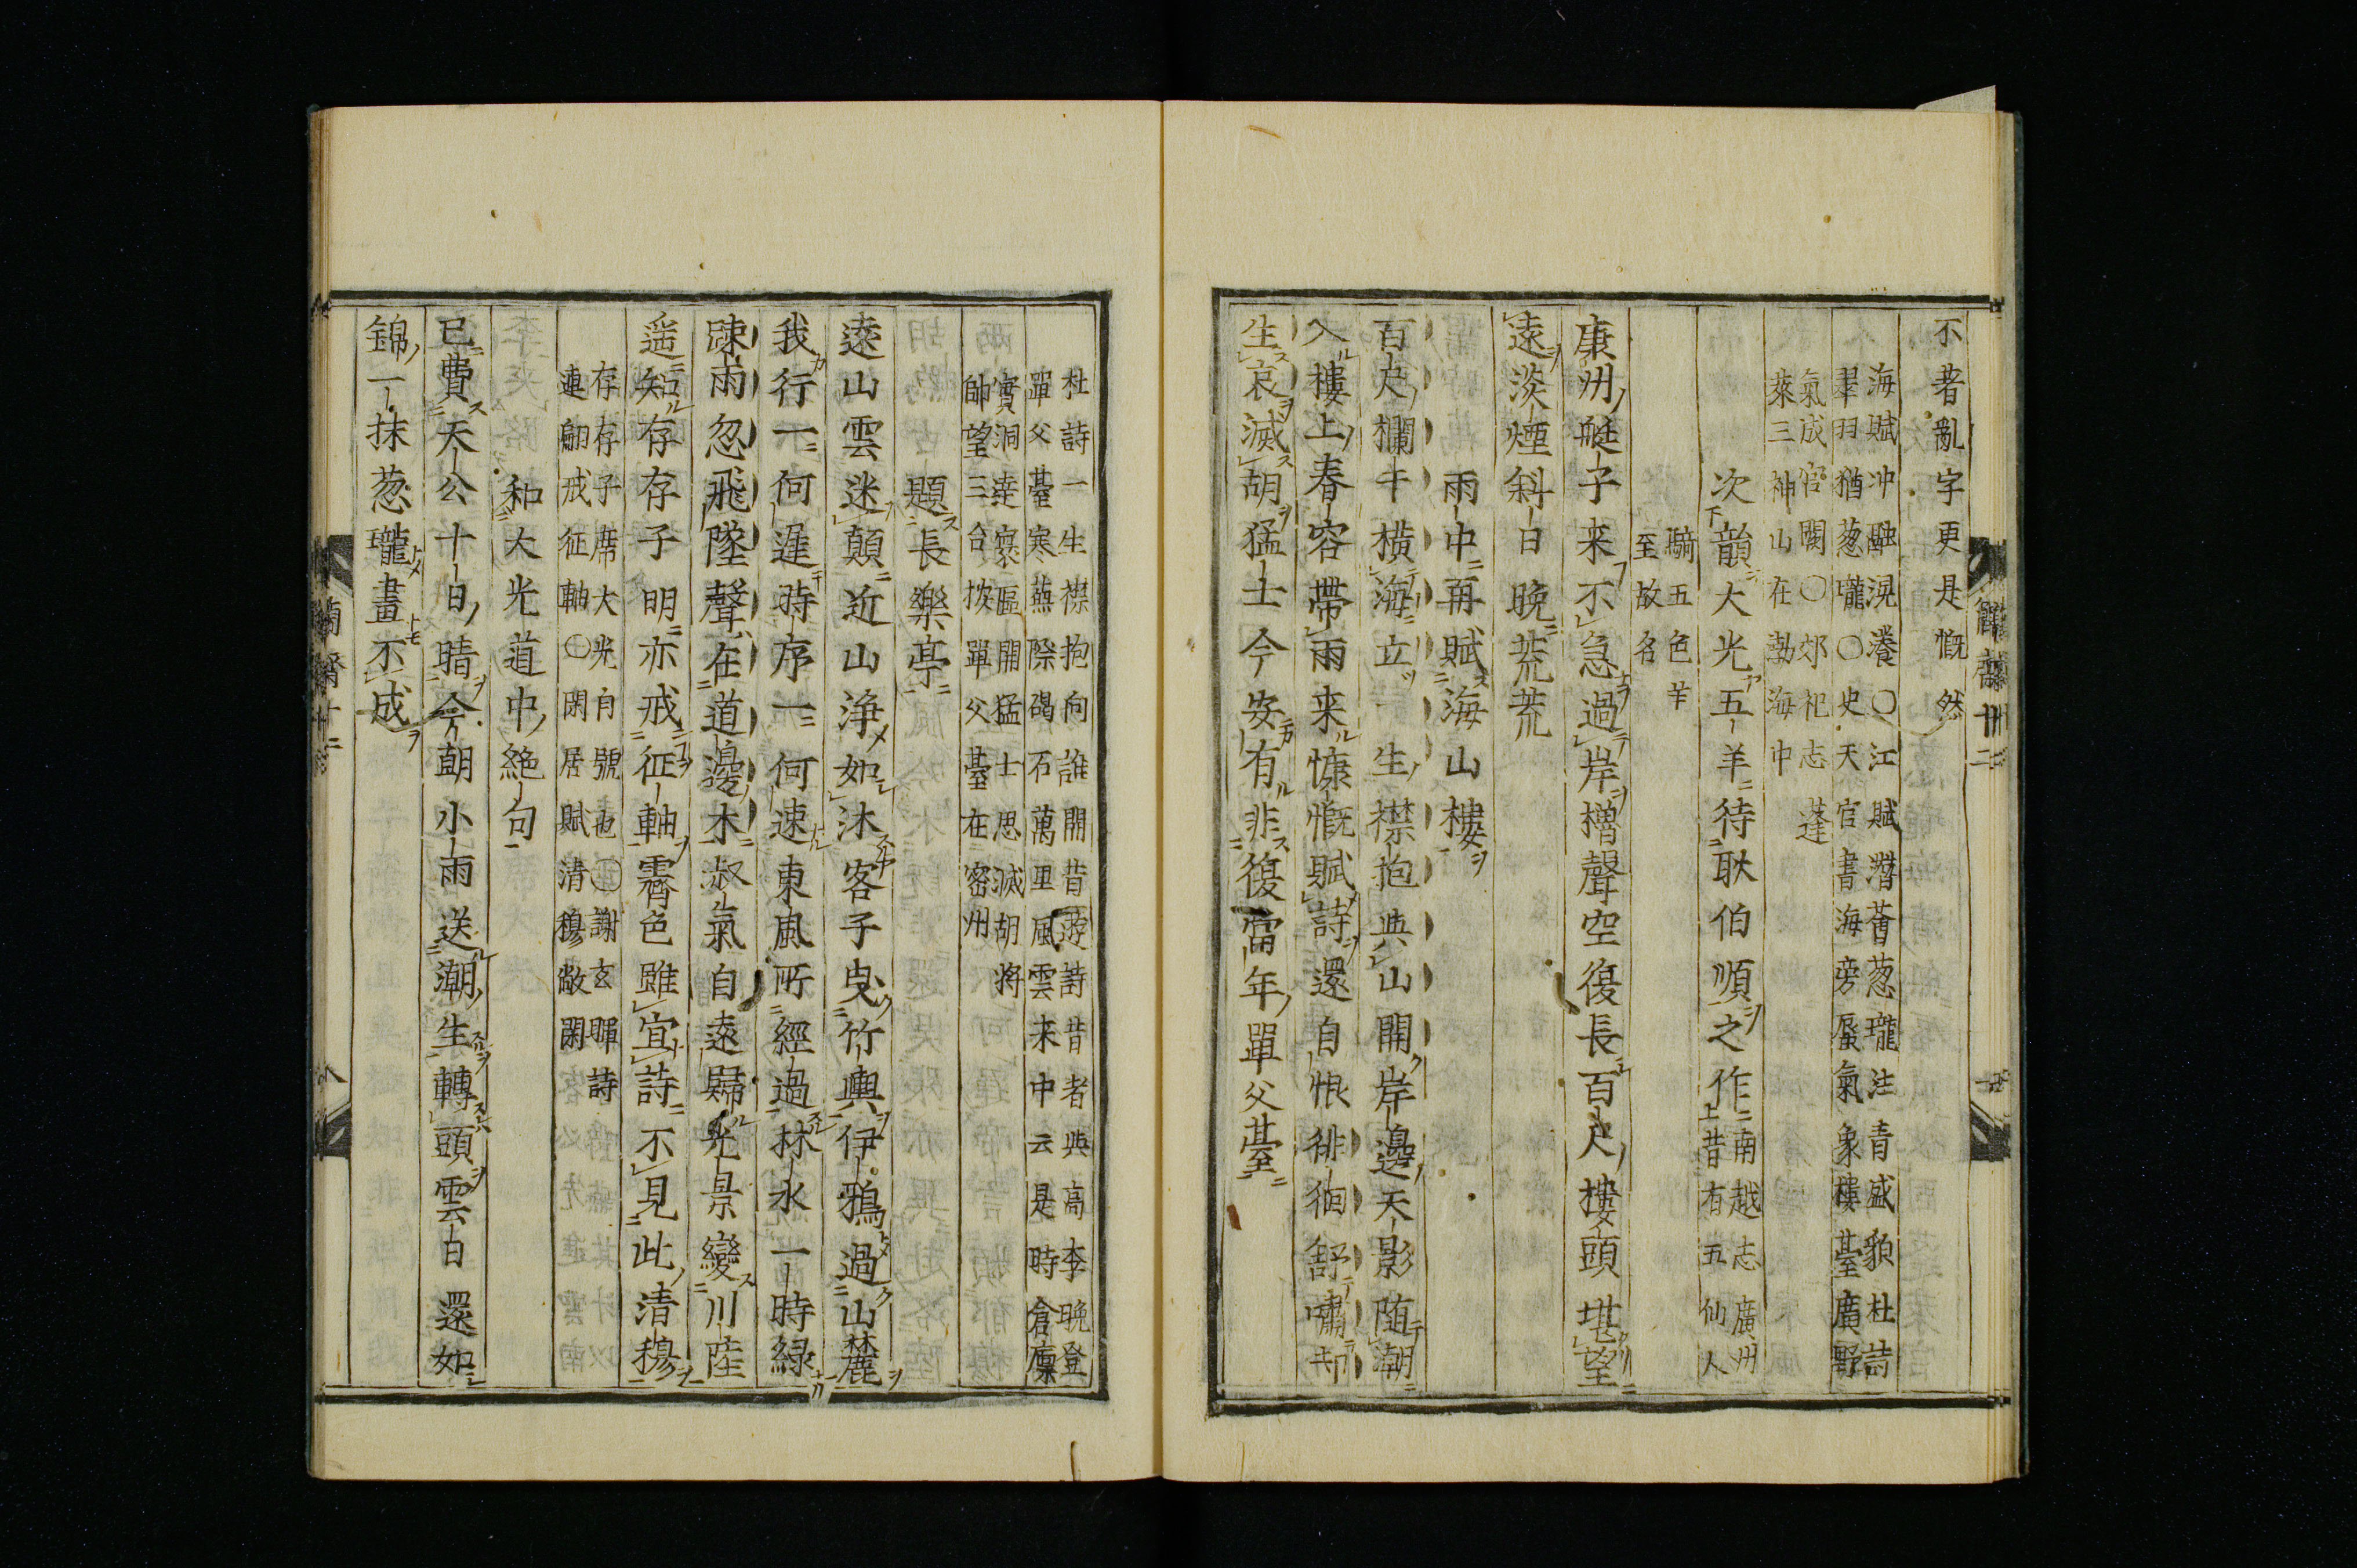 不著亂字更是慨然
海賦冲融滉瀁〇江賦濳薈葱瓏注青盛貌杜詩
翠羽猶葱瓏〇史天官書海旁蜃氣象樓臺廣野
氣成官闕〇郊祀志蓬
萊三神山在渤海中
次韻大光五羊待耿伯順之作
南越志廣州
昔有五仙人
騎五色羊
至故名
康州艇子来不急過岸櫓聲空復長百尺樓頭堪望
遠淡煙斜日晩荒荒
雨中再賦海山樓
百尺欄干横海立一生襟抱與山開岸邊天影随潮
入樓上春容帶雨来慷慨賦詩還自恨徘徊舒嘯却
生哀滅胡猛士今安有非復當年單父臺
杜詩一生襟抱向誰開昔遊詩昔者與高李晩登
單父臺寒蕪際碣石萬里風雲来中云是時倉廩
實洞達寰區開猛士思滅胡將
帥望三台按單父臺在密州
題長樂亭
遠山雲迷顛近山浄如沐客子曳竹輿伊鴉過山麓
我行一何遲時序一何速東風所經過林水一時緑
踈雨忽飛墜聲在道邊木叔氣自遠歸光景變川陸
遥知存存子明亦戒征軸霽色雖宜詩不見此清穆
存存子席大光自號也〇謝玄暉詩
連翩戒征軸〇閑居賦清穆敞閑
和大光道中絶句
已費天公十日晴今朝小雨送潮生轉頭雲日還如
錦一抹葱瓏畫不成
簡齋卅二